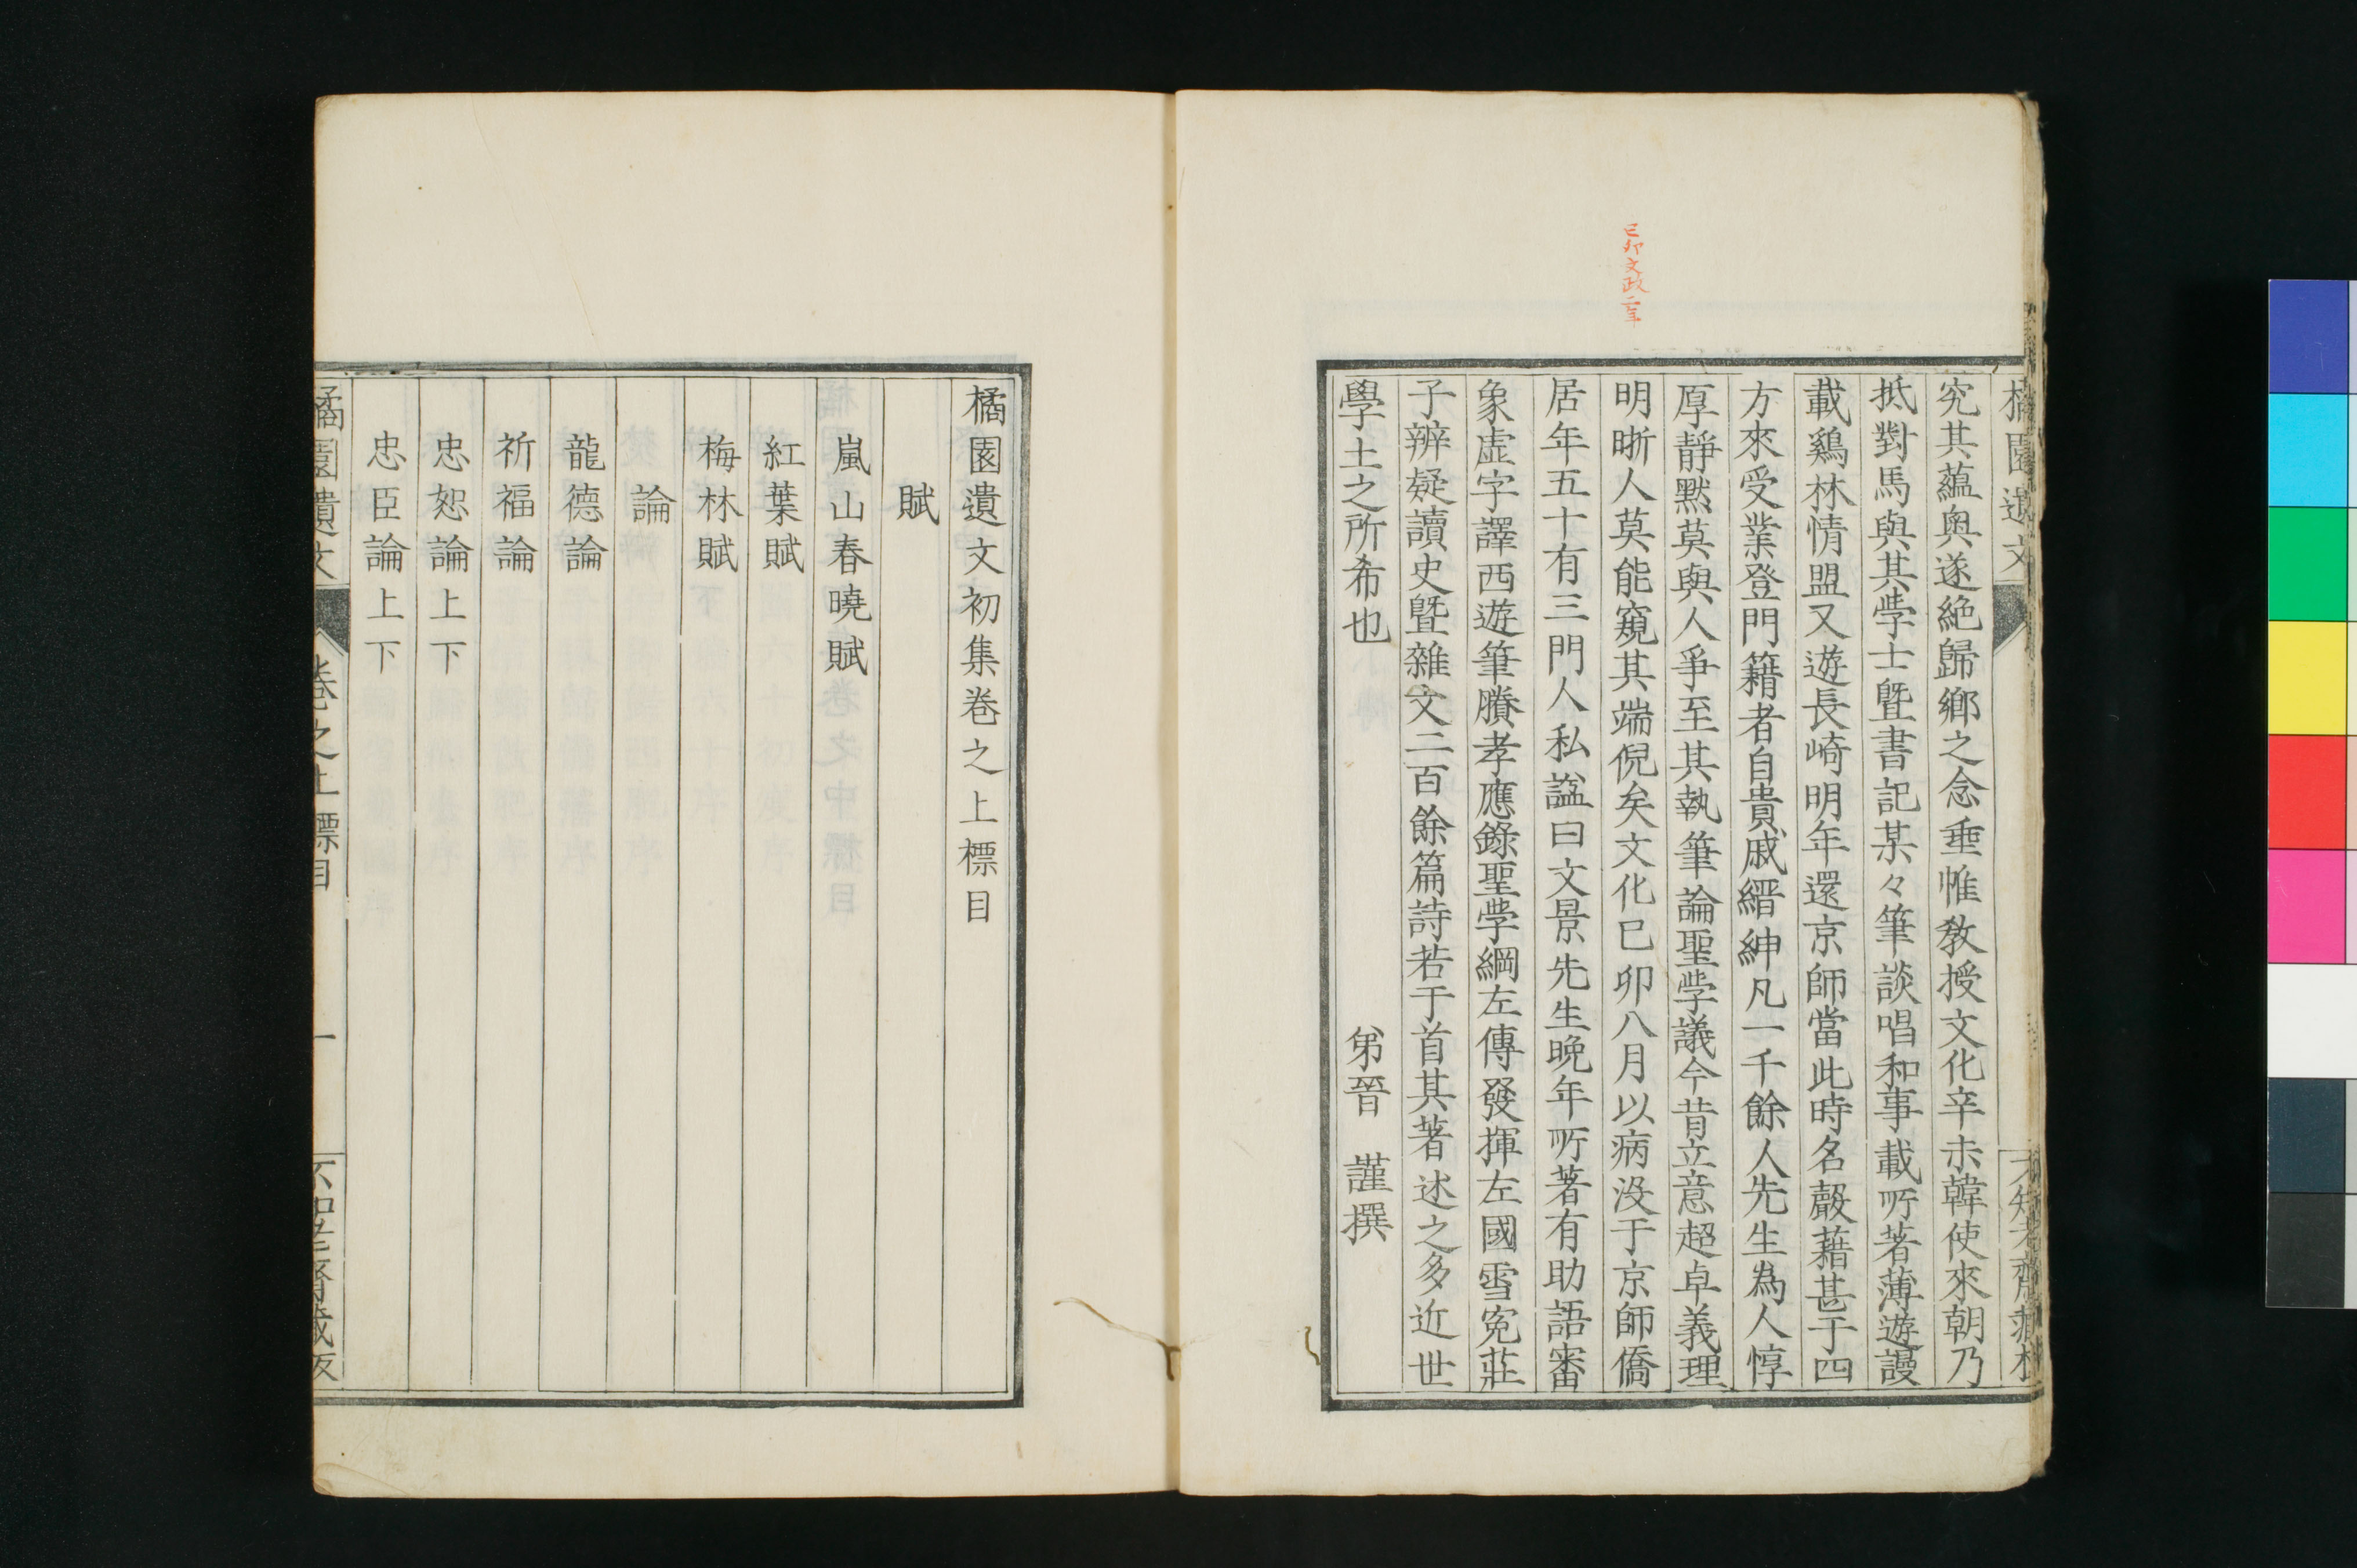 橘園遺文
究其蘊奥遂絶歸鄉之念垂帷教授文化辛未韓使來朝乃
抵對馬與其學士曁書記某々筆談唱和事載所著薄遊謾
載鷄林情盟又遊長崎明年還京師當此時名聲藉甚于四
方來受業登門籍者自貴戚縉紳凡一千餘人先生為人惇
厚靜默莫與人爭至其執筆論聖學議今昔立意超卓義理
明晰人莫能窺其端倪矣文化己卯八月以病没于京師僑
居年五十有三門人私謚曰文景先生晚年所著有助語審
象虛字譯西遊筆賸孝應錄聖學綱左傳發揮左國雪冤莊
子辨疑讀史曁雜文二百餘篇詩若干首其著述之多近世
學士之所希也
弟晉 謹撰
己卯文政二年
橘園遺文初集巻之上標目
賦
嵐山春曉賦
紅葉賦
梅林賦
論
龍德論
祈福論
忠恕論上下
忠臣論上下
橘園遺文 巻之上標目 一 不知老齋藏板